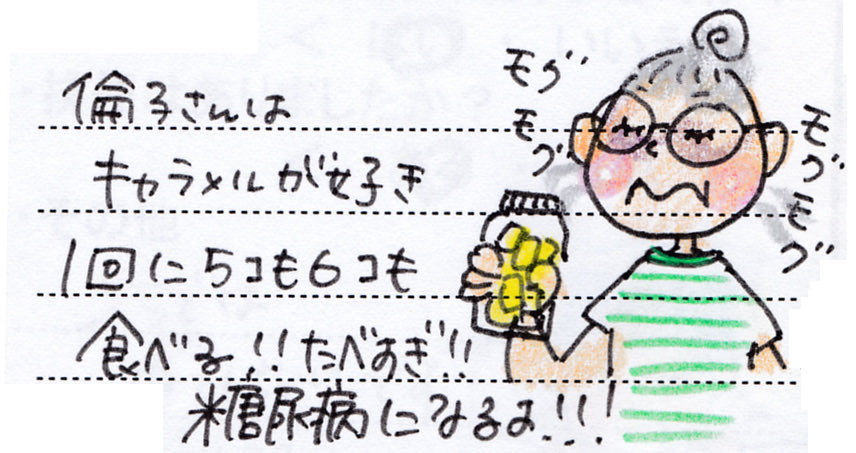 倫子さんは
キャラメルが好き
1回に5コも6コも
食べる!!たべすぎ!!
糖尿病になるよ!!!
モグ
モグ
モグ
モグ